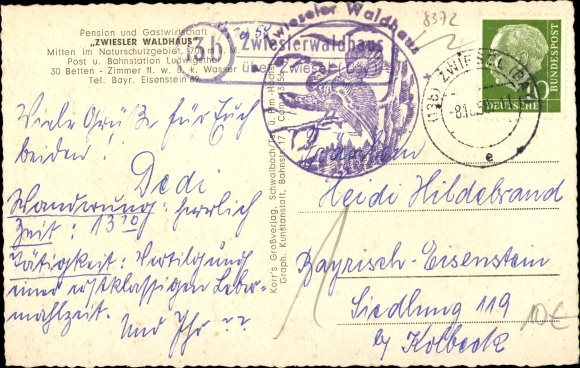 Pension und Gastwirtschaft
„ZWIESLER WALDHAUS"
Mitten im Naturschutzgebiet, 701 m ü. M.
Post u. Bahnstation Ludwigsthal
30 Betten - Zimmer fl. w. u. k. Wasser
Tel. Bayr. Eisenstein 69
(13b) Zwieslerwaldhaus
über Zwiesel
Zwieseler Waldhaus
8372
DEUTSCHE
BUNDESPOST
10
(13b) ZWIESEL (B)
-8.10.5
e
Viele Grüße für Euch
beiden!
Dedi
Wanderung: herrlich
Zeit: 13 30
Tätigkeit: Vertilgung
einer erstklassigen Leber-
mahlzeit.
Und Ihr ??
Korr's Großverlag, Schwalbach/Ts. u. Hm.-Höchst
Graph. Kunstanstalt, Bahnstr.
Fräulein
Heidi Hildebrand
Bayrisch-Eisenstein
Siedlung 119
b/ Kolbeck
10€